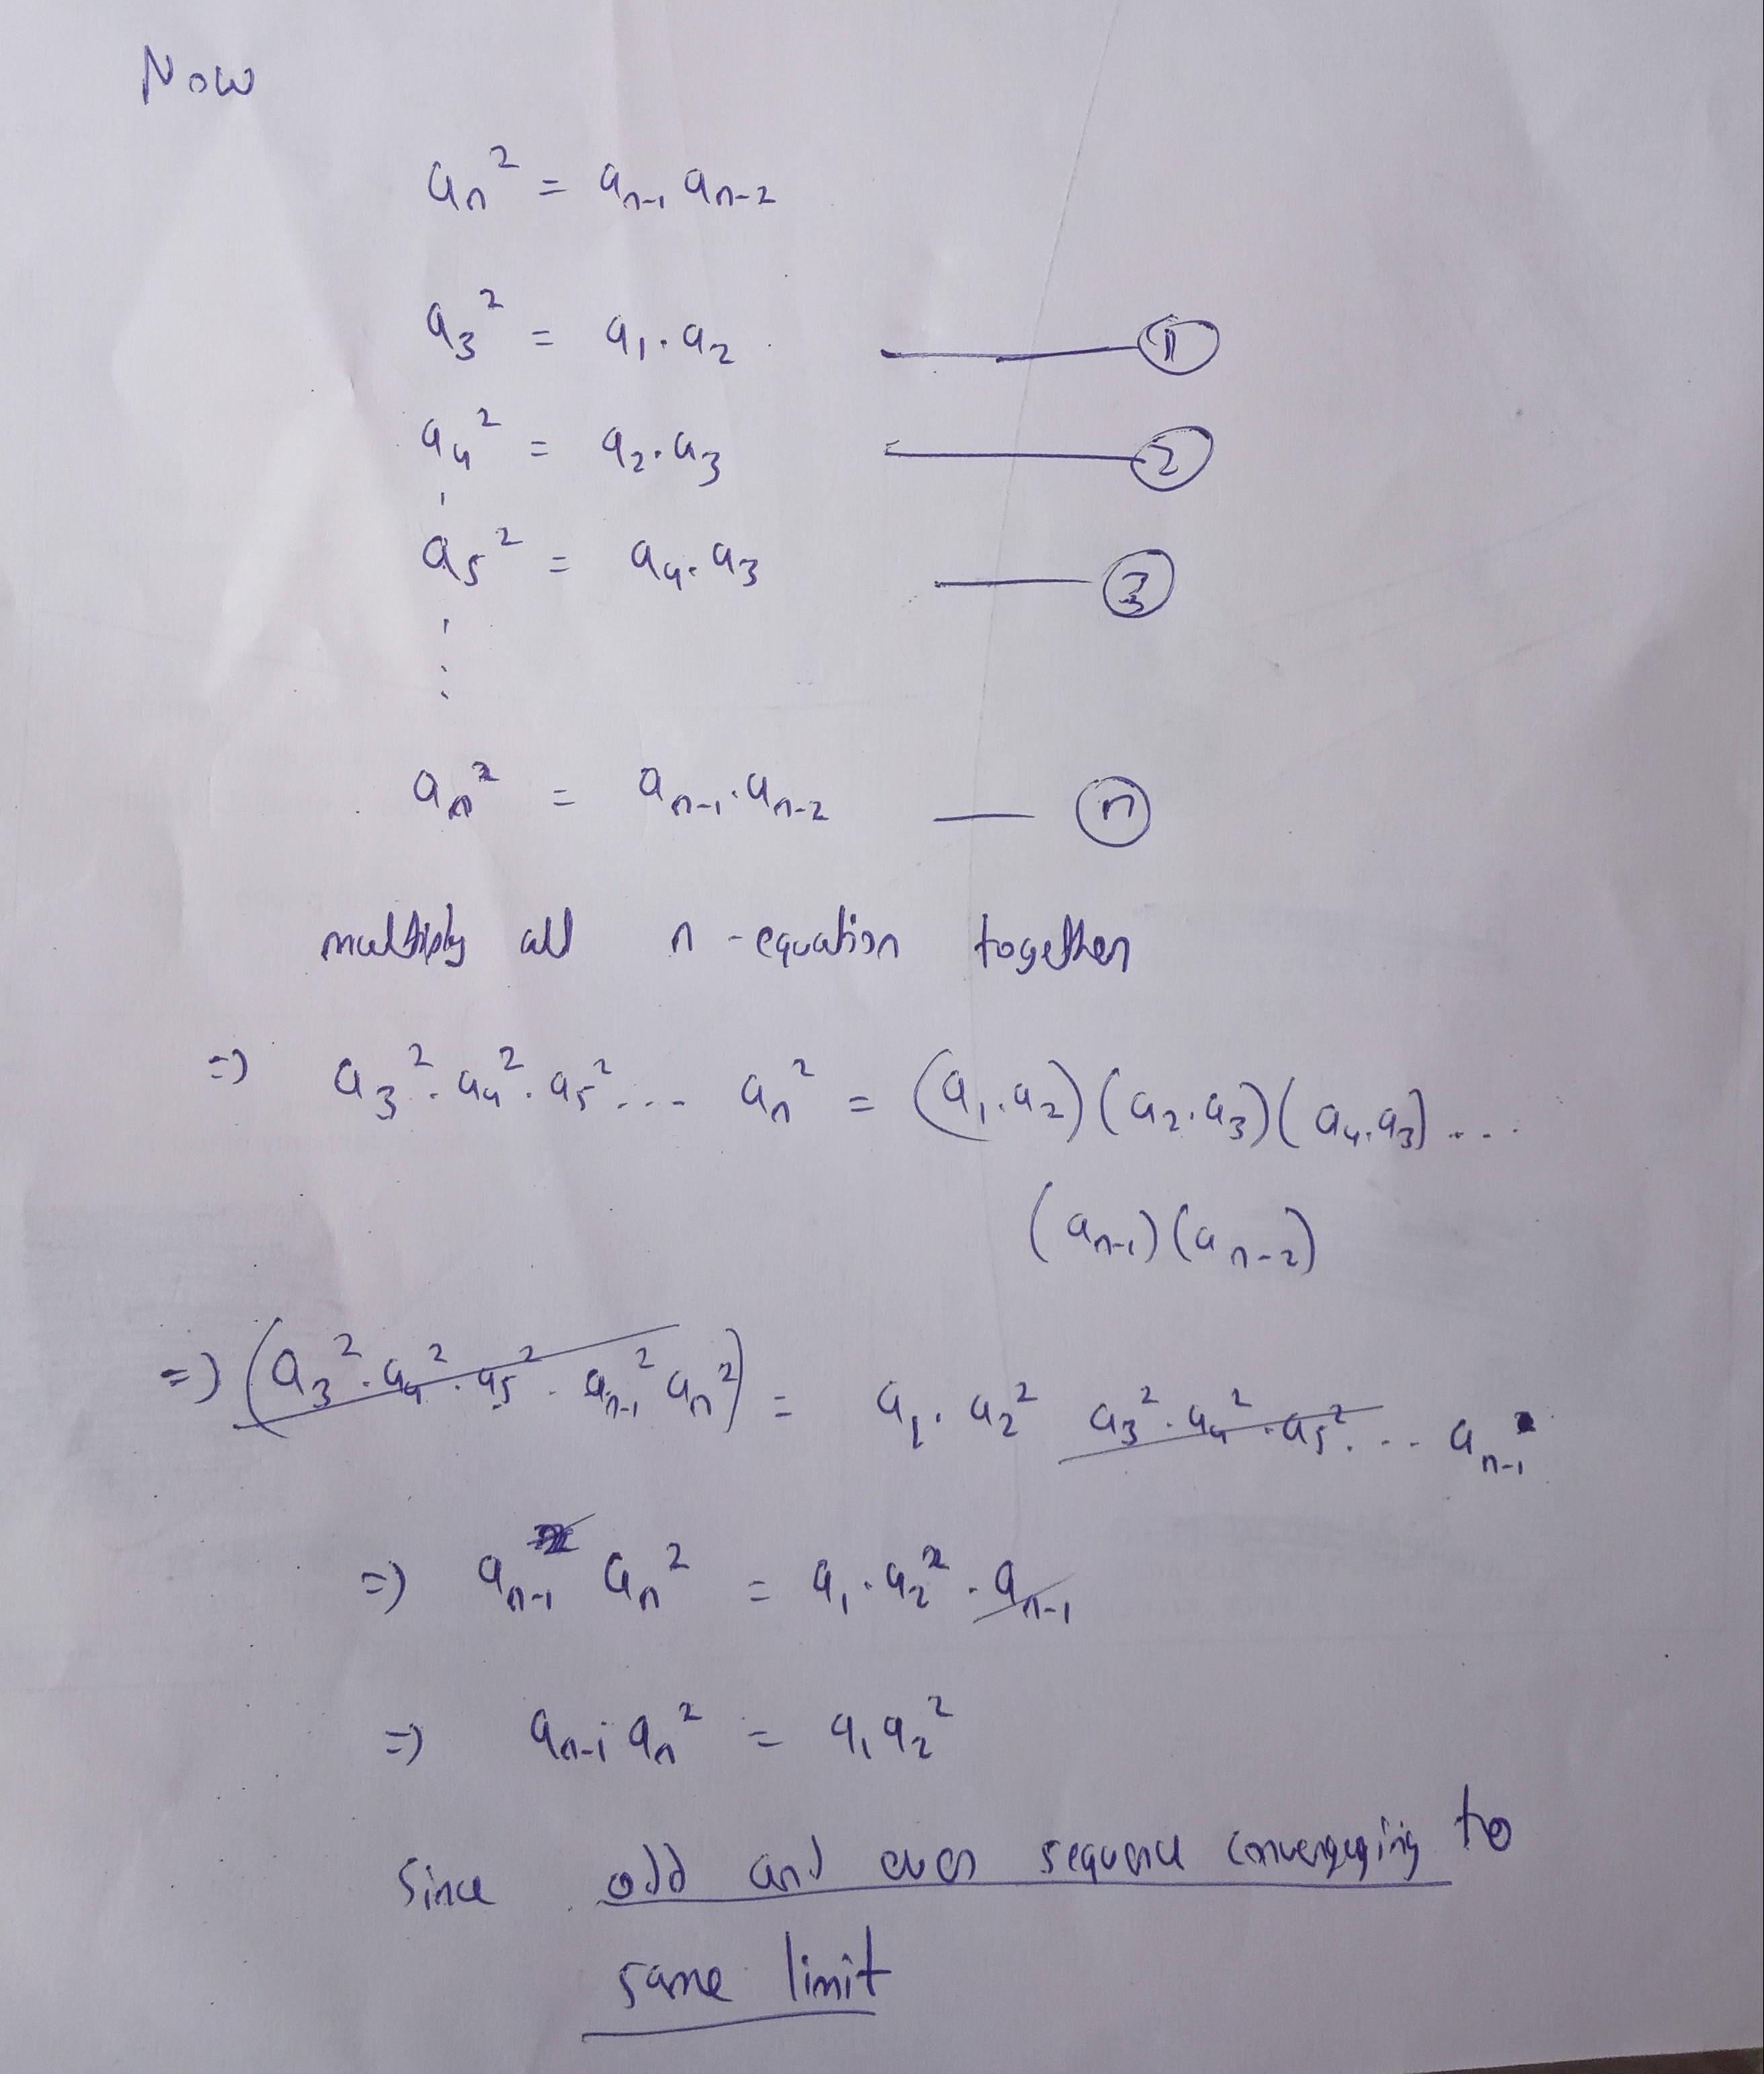 Now
aₙ² = aₙ₋₁ aₙ₋₂
a₃² = a₁ . a₂ —— ①
a₄² = a₂ . a₃ —— ②
a₅² = a₄ . a₃ —— ③
⋮
aₙ² = aₙ₋₁ . aₙ₋₂ — ⓝ
multiply all n - equation together
=) a₃² . a₄² . a₅² ... aₙ² = (a₁ . a₂) (a₂ . a₃) (a₄ . a₃) ...
(aₙ₋₁) (aₙ₋₂)
=) (a₃² . a₄² . a₅² . aₙ₋₁² aₙ²) = a₁ . a₂² a₃² . a₄² . a₅² . ... aₙ₋₁
=) aₙ₋₁ aₙ² = a₁ . a₂² . aₙ₋₁
=) aₙ₋₁ aₙ² = a₁ a₂²
Since odd and even sequence convergging to
same limit